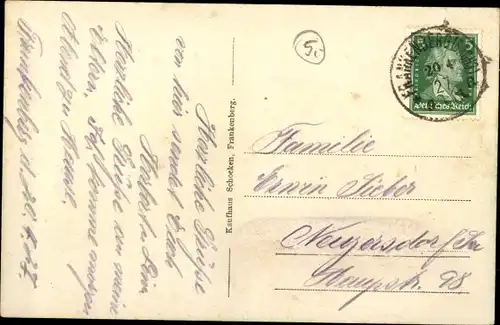 Frankenberg, 20. 4. 27.
Herzliche Grüße
von hier sendet Euch
Herzliche Grüße an meine
Eltern, Ich komme morgen
Abend zu Hause.
Kaufhaus Schocken, Frankenberg.
5.-
FRANKENBERG
20 4
5
Deutsches Reich
Familie
Erwin Sieber
Neugersdorf/Sa
Haupstr. 98